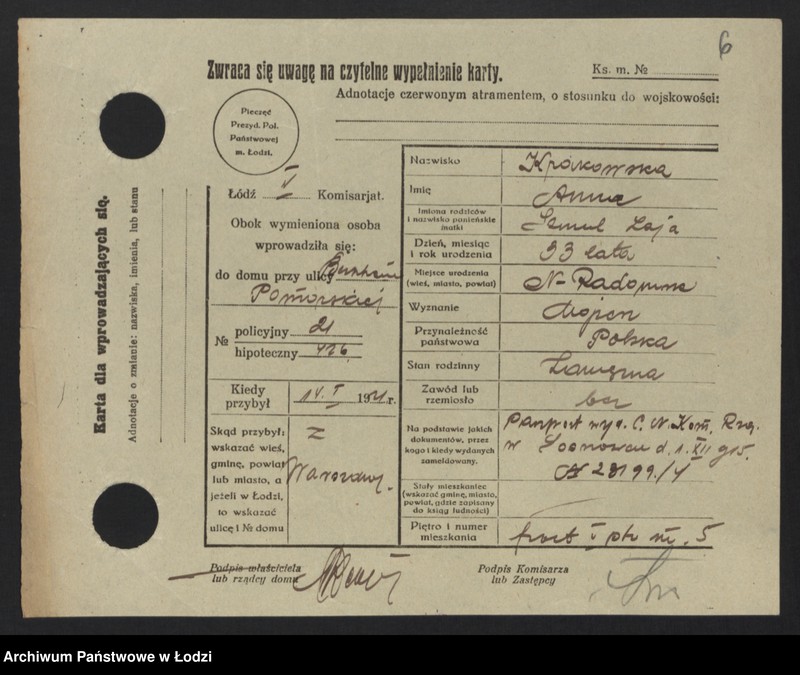 6
Zwraca się uwagę na czytelne wypełnienie karty.
Ks. m. №
Adnotacje czerwonym atramentem, o stosunku do wojskowości:
Pieczęć
Prezyd. Pol.
Państwowej
m. Łodzi.
Łódź V Komisarjat.
Obok wymieniona osoba
wprowadziła się:
do domu przy ulicy
Pomorskiej
№ policyjny 21
hipoteczny 426
Kiedy przybył 14. I 1921 r.
Skąd przybył:
wskazać wieś,
gminę, powiat
lub miasto, a
jeżeli w Łodzi,
to wskazać
ulicę i № domu
z
Warszawy.
Nazwisko Krakowska
Imię Anna
Imiona rodziców
i nazwisko panieńskie
matki
Laja
Dzień, miesiąc
i rok urodzenia
33 lata
Miejsce urodzenia
(wieś, miasto, powiat)
N-Radomsk
Wyznanie
Przynależność
państwowa
Polska
Stan rodzinny Zamężna
Zawód lub
rzemiosło
bez
Na podstawie jakich
dokumentów, przez
kogo i kiedy wydanych
zameldowany.
Paszport wyd. C. N. Kom. Rzą.
w Sosnowcu d. 1. XII 915.
№ 28199/
Stały mieszkaniec
(wskazać gminę, miasto,
powiat, gdzie zapisany
do ksiąg ludności)
Piętro i numer
mieszkania
front I ptr m. 5
Podpis właściciela
lub rządcy domu
Podpis Komisarza
lub Zastępcy
Karta dla wprowadzających się.
Adnotacje o zmianie: nazwiska, imienia, lub stanu
Archiwum Państwowe w Łodzi